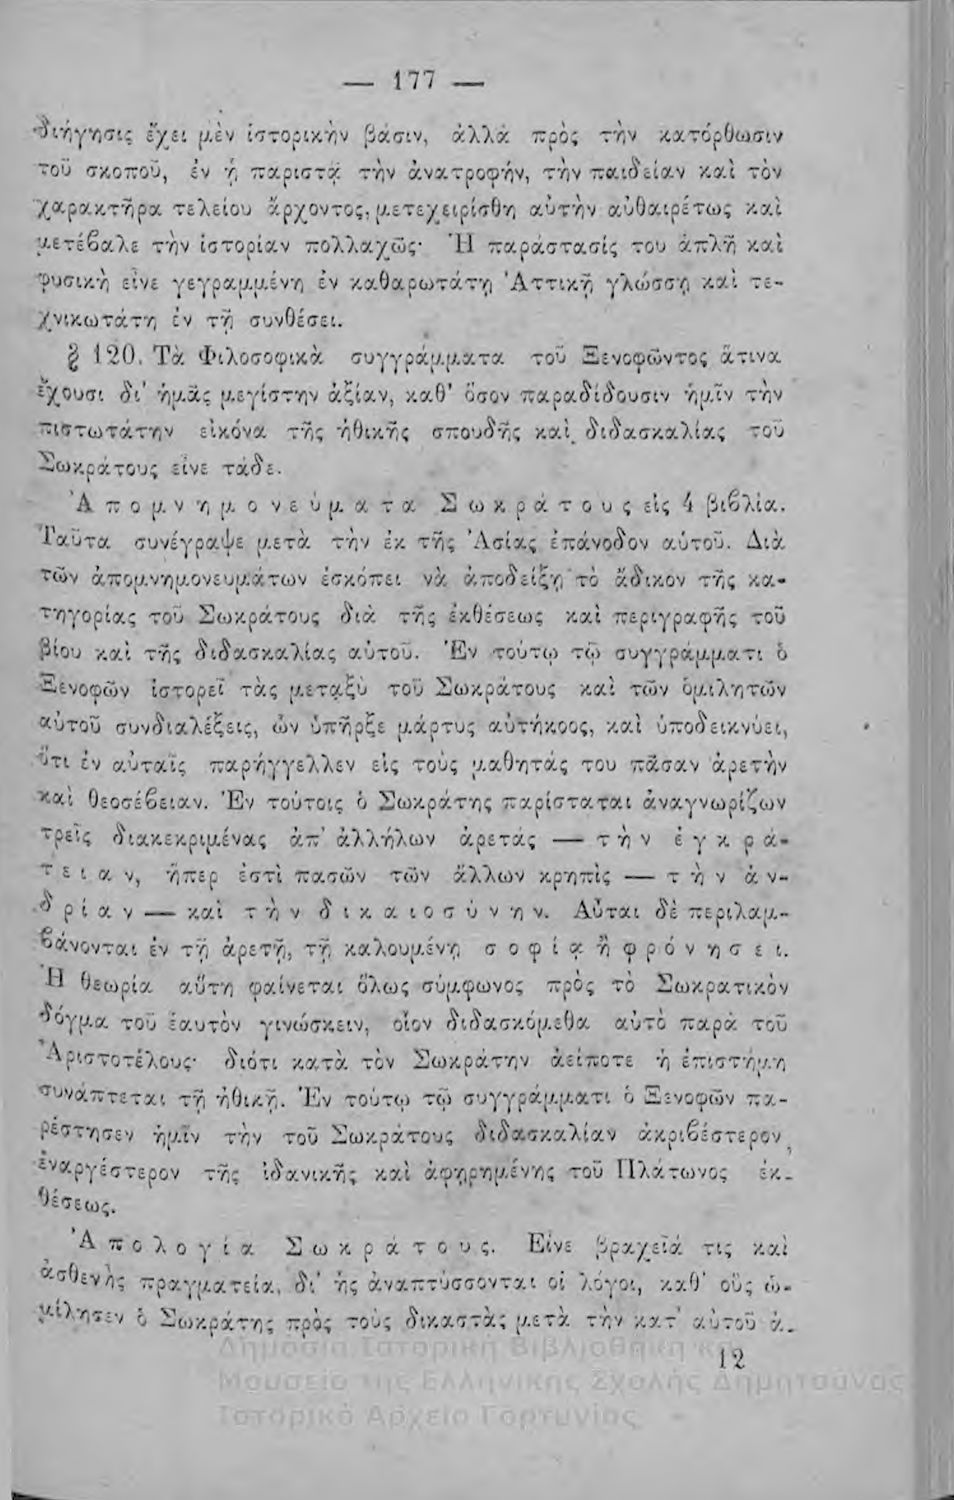 — 177 —
διήγησις ἔχει μὲν ἱστορικὴν βάσιν, ἀλλὰ πρὸς τὴν κατόρθωσιν
τοῦ σκοποῦ, ἐν ᾗ παριστᾷ τὴν ἀνατροφήν, τὴν παιδείαν καὶ τὸν
χαρακτῆρα τελείου ἄρχοντος, μετεχειρίσθη αὐτὴν αὐθαιρέτως καὶ
μετέβαλε τὴν ἱστορίαν πολλαχῶς· Ἡ παράστασίς του ἁπλῆ καὶ
φυσικὴ εἶνε γεγραμμένη ἐν καθαρωτάτῃ Ἀττικῇ γλώσσῃ καὶ τε-
χνικωτάτη ἐν τῇ συνθέσει.
§ 120. Τὰ Φιλοσοφικὰ συγγράμματα τοῦ Ξενοφῶντος ἅτινα
ἔχουσι δι' ἡμᾶς μεγίστην ἀξίαν, καθ' ὅσον παραδίδουσιν ἡμῖν τὴν
πιστωτάτην εἰκόνα τῆς ἠθικῆς σπουδῆς καὶ διδασκαλίας τοῦ
Σωκράτους εἶνε τάδε.
Ἀπομνημονεύματα Σωκράτους εἰς 4 βιβλία.
Ταῦτα συνέγραψε μετὰ τὴν ἐκ τῆς Ἀσίας ἐπάνοδον αὑτοῦ. Διὰ
τῶν ἀπομνημονευμάτων ἐσκόπει νὰ ἀποδείξῃ τὸ ἄδικον τῆς κα-
τηγορίας τοῦ Σωκράτους διὰ τῆς ἐκθέσεως καὶ περιγραφῆς τοῦ
βίου καὶ τῆς διδασκαλίας αὐτοῦ. Ἐν τούτῳ τῷ συγγράμματι ὁ
Ξενοφῶν ἱστορεῖ τὰς μεταξὺ τοῦ Σωκράτους καὶ τῶν ὁμιλητῶν
αὐτοῦ συνδιαλέξεις, ὧν ὑπῆρξε μάρτυς αὐτήκοος, καὶ ὑποδεικνύει,
ὅτι ἐν αὐταῖς παρήγγελλεν εἰς τοὺς μαθητάς του πᾶσαν ἀρετὴν
καὶ θεοσέβειαν. Ἐν τούτοις ὁ Σωκράτης παρίσταται ἀναγνωρίζων
τρεῖς διακεκριμένας ἀπ' ἀλλήλων ἀρετάς — τὴν ἐγκρά-
τειαν, ἥπερ ἐστὶ πασῶν τῶν ἄλλων κρηπὶς — τὴν ἀν-
δρίαν — καὶ τὴν δικαιοσύνην. Αὗται δὲ περιλαμ-
βάνονται ἐν τῇ ἀρετῇ, τῇ καλουμένῃ σοφίᾳ ἢ φρόνησει.
Ἡ θεωρία αὕτη φαίνεται ὅλως σύμφωνος πρὸς τὸ Σωκρατικὸν
δόγμα τοῦ ἑαυτὸν γινώσκειν, οἷον διδασκόμεθα αὐτὸ παρὰ τοῦ
Ἀριστοτέλους· διότι κατὰ τὸν Σωκράτην ἀείποτε ἡ ἐπιστήμη
συνάπτεται τῇ ἠθικῇ. Ἐν τούτῳ τῷ συγγράμματι ὁ Ξενοφῶν πα-
ρέστησεν ἡμῖν τὴν τοῦ Σωκράτους διδασκαλίαν ἀκριβέστερον,
ἐναργέστερον τῆς ἰδανικῆς καὶ ἀφῃρημένης τοῦ Πλάτωνος ἐκ-
θέσεως.
Ἀπολογία Σωκράτους. Εἶνε βραχεῖά τις καὶ
ἀσθενὴς πραγματεία, δι' ἧς ἀναπτύσσονται οἱ λόγοι, καθ' οὓς ὡ-
μίλησεν ὁ Σωκράτης πρὸς τοὺς δικαστὰς μετὰ τὴν κατ' αὐτοῦ ἀ-
12
Δημόσια Ιστορική Βιβλιοθήκη και
Μουσείο της Ελληνικής Σχολής Δημητσάνας
Ιστορικό Αρχείο Γορτυνίας